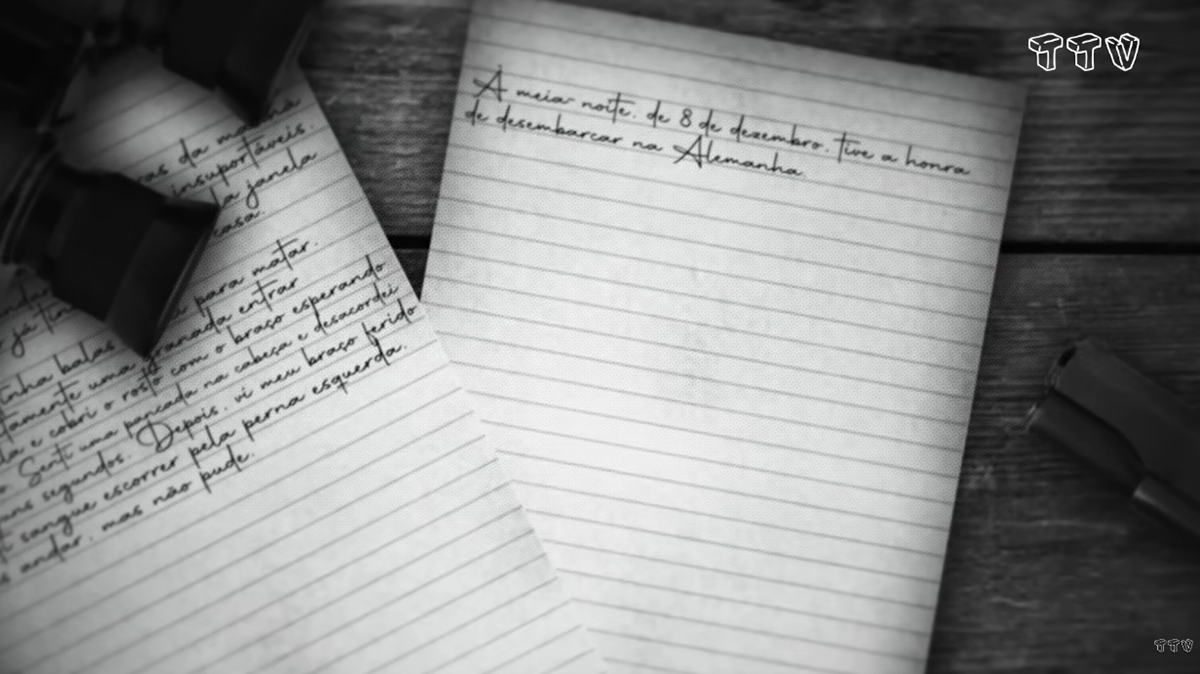 TTV
A meia-noite, de 8 de dezembro, tive a honra
de desembarcar na Alemanha.
da
insuportáveis.
la janela
casa.
para matar.
já
granada entrar
tinha balas
uma
e cobri o rosto com o braço esperando
Senti uma pancada na cabeça e desacordei
segundos. Depois, vi meu braço ferido
sangue escorrer pela perna esquerda.
andar, mas não pude.
TTV